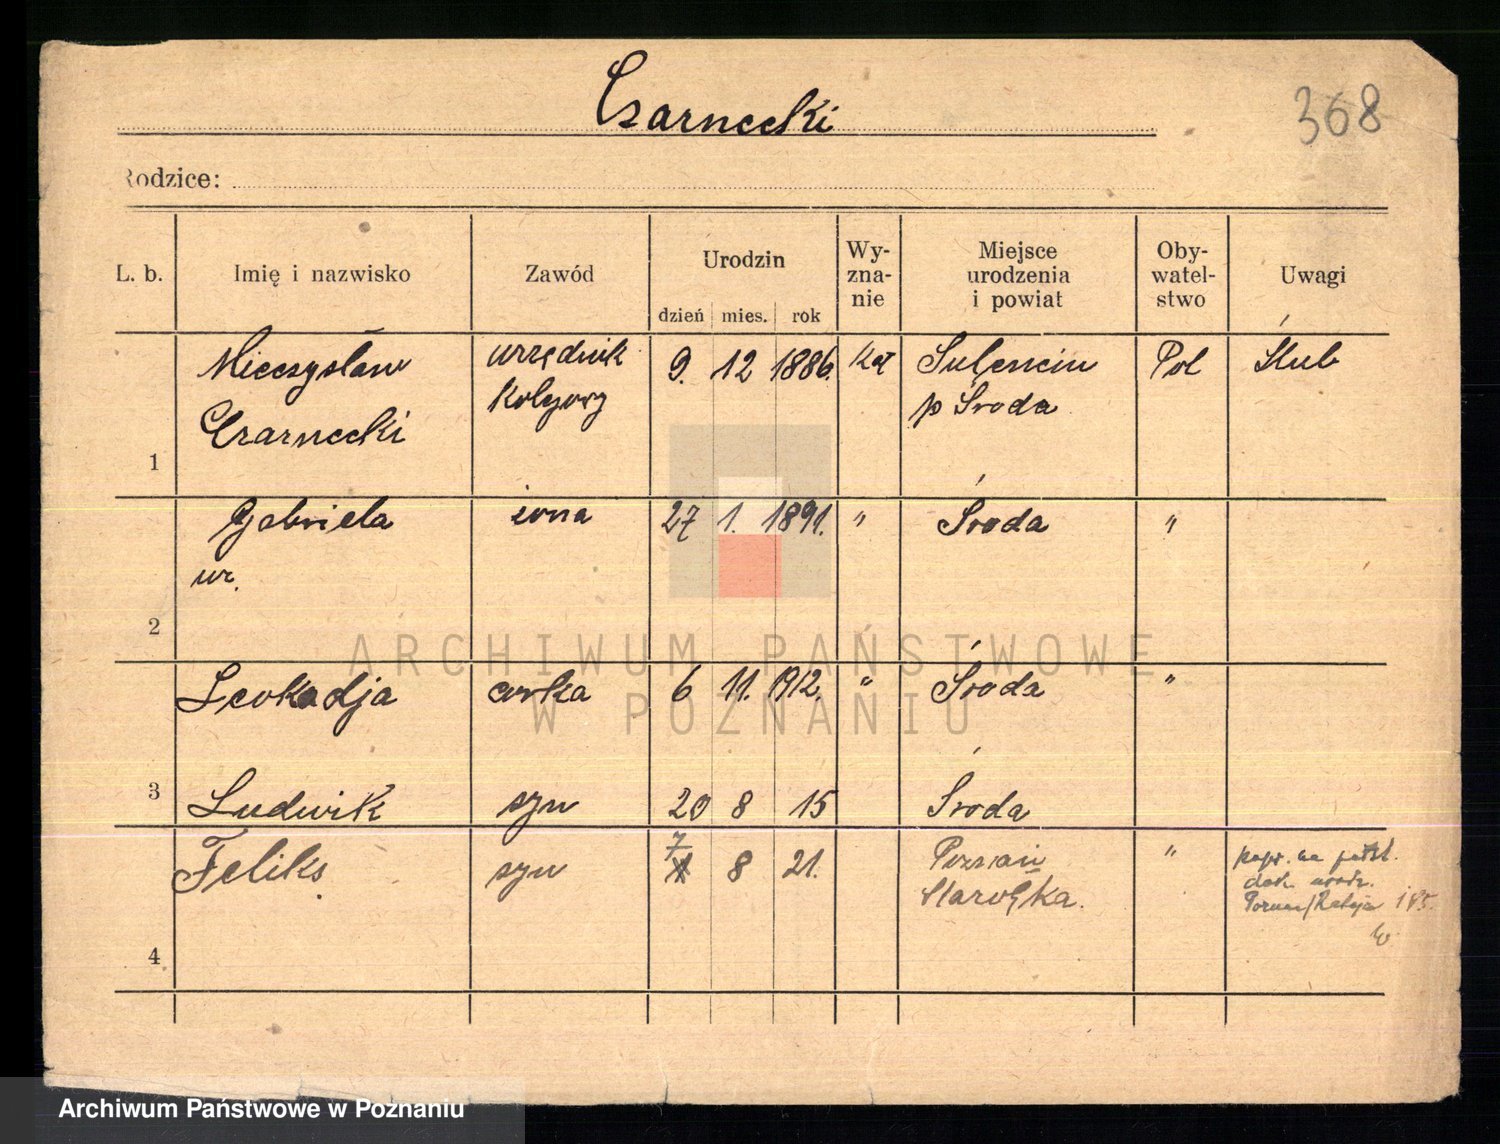 Czarnecki
368
Rodzice:
L. b. Imię i nazwisko Zawód Urodzin dzień mies. rok Wy-zna-nie Miejsce urodzenia i powiat Oby-watel-stwo Uwagi
Mieczysław urzędnik 9. 12 1886. kat Sulęcin Pol Ślub
Czarnecki kolejowy p Środa
1
Gabriela żona 27 1. 1891. " Środa "
ur.
2
Leokadja córka 6 11. 1912. " Środa "
3 Ludwik syn 20 8 15 Środa
Feliks syn 7 8 21. Poznań "
Starołęka.
4
ARCHIWUM PAŃSTWOWE
W POZNANIU
Archiwum Państwowe w Poznaniu